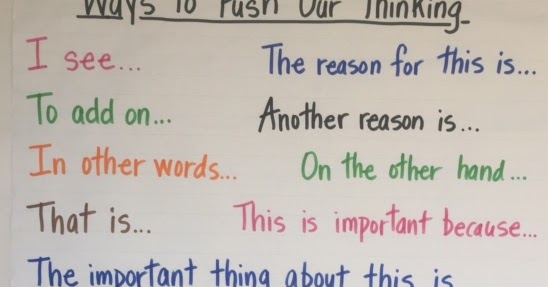 Ways To Push Our Thinking
I see... The reason for this is...
To add on... Another reason is...
In other words... On the other hand...
That is... This is important because...
The important thing about this is